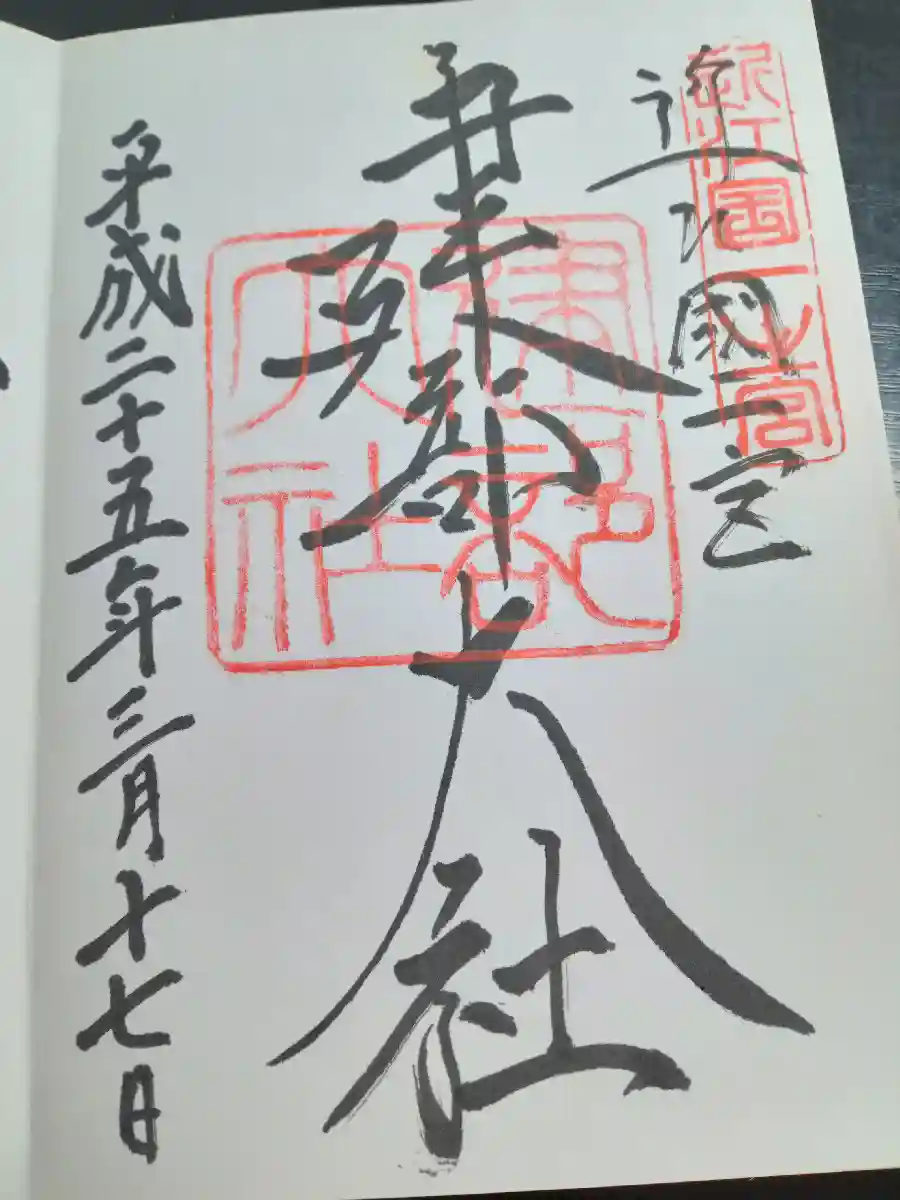 近江國一宮
近江國一之宮
建部大社
建部大社
平成二十五年三月十七日